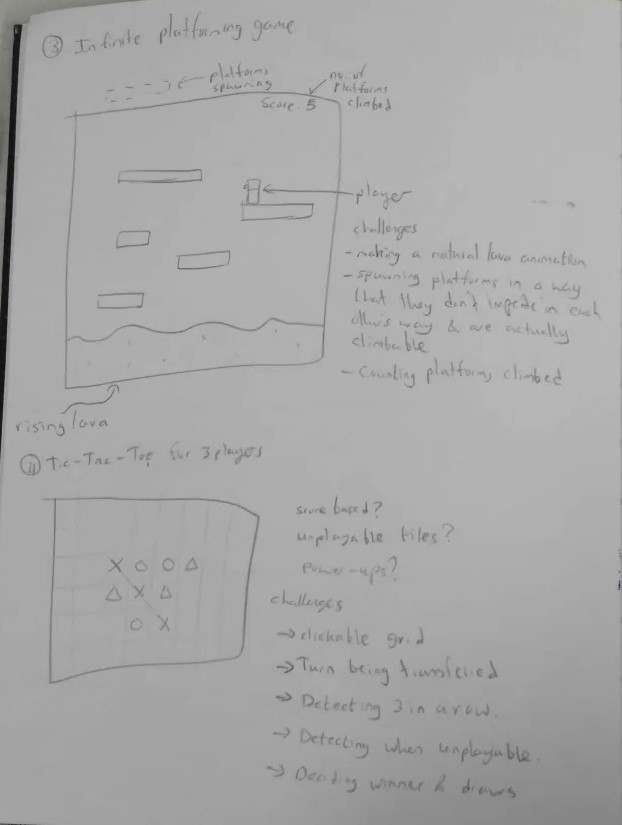 ③ Infinite platforming game
platforms
spawning
no. of
Platforms
climbed
Score 5
player
challenges
- making a natural lava animation
- spawning platforms in a way
that they don't impede in each
other's way & are actually
climbable
- Counting platforms climbed
rising lava
④ Tic-Tac-Toe for 3 players
score based?
unplayable tiles?
Power-ups?
X O O △
△ X △
O X
challenges
→ clickable grid
→ Turn being transferred
→ Detecting 3 in a row.
→ Detecting when unplayable.
→ Deciding winner & draws